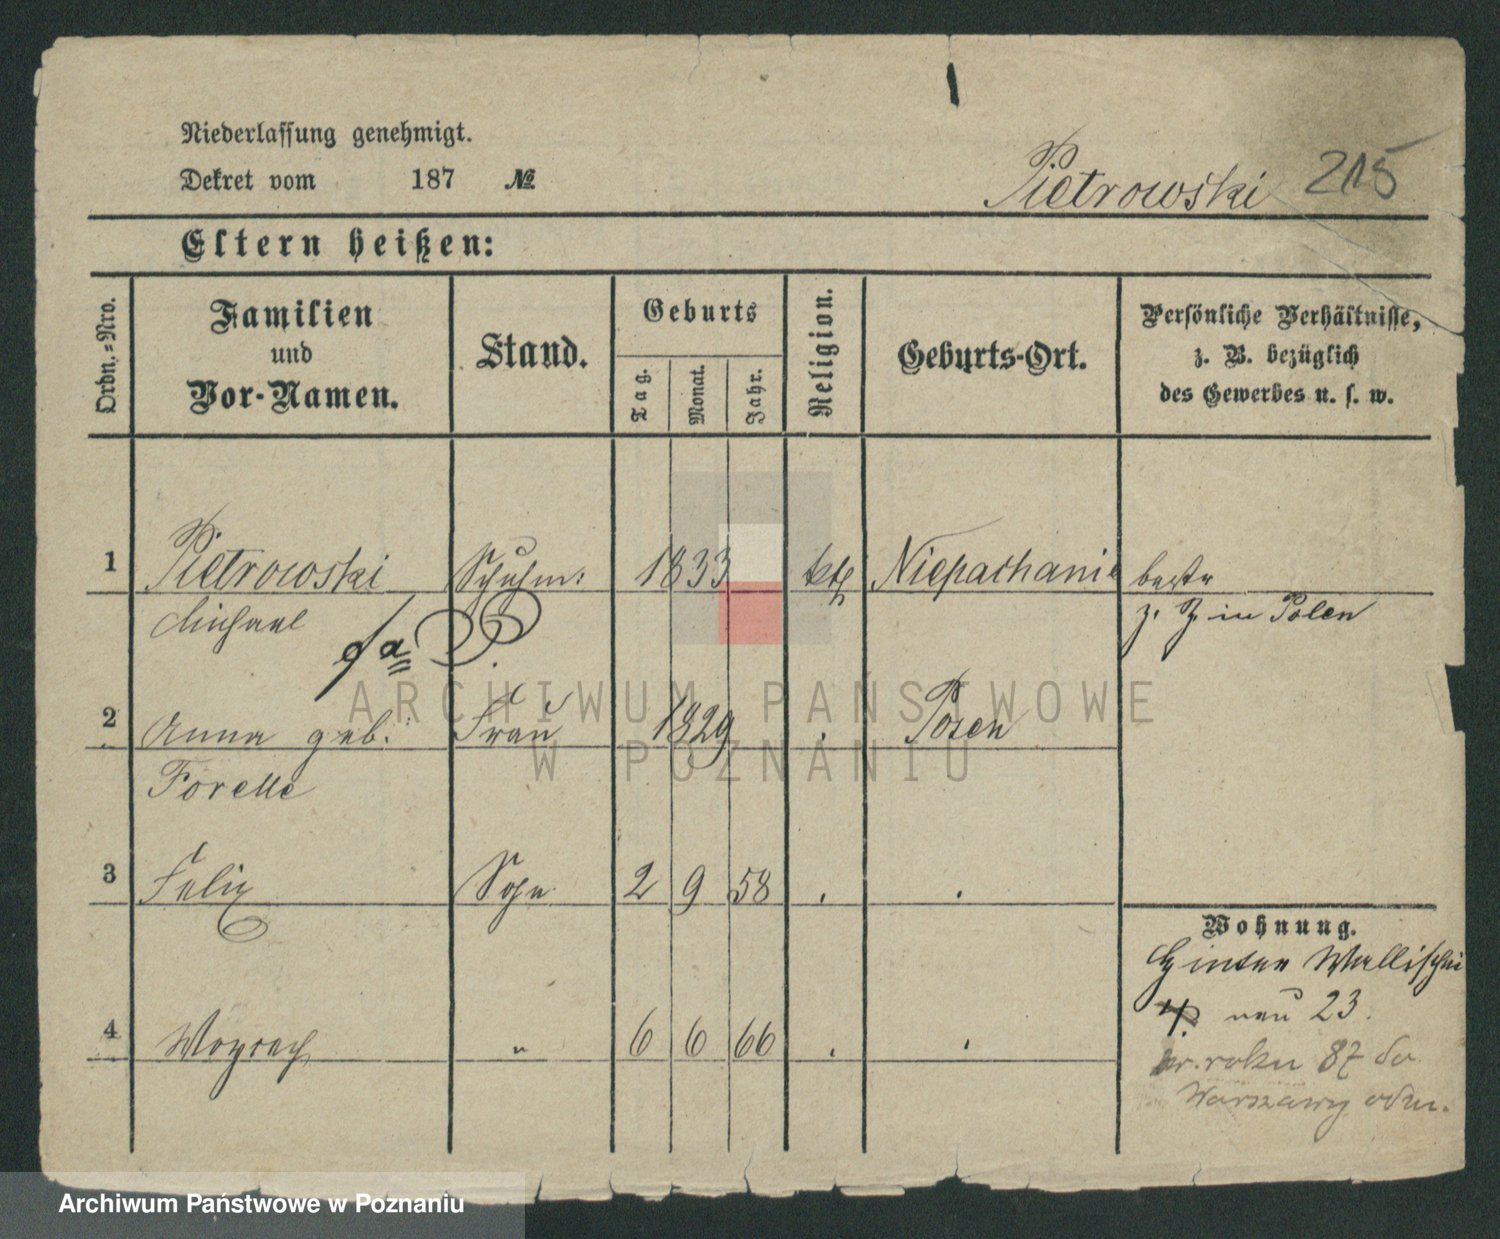 Niederlassung genehmigt.
Dekret vom 187 №
Pietrowski 215
Eltern heißen:
Ordn.-Nro.
Familien
und
Vor-Namen.
Stand.
Geburts
Tag.
Monat.
Jahr.
Religion.
Geburts-Ort.
Persönliche Verhältnisse,
z. B. bezüglich
des Gewerbes u. s. w.
1 Pietrowski Schuhm: 1833 kth
Michael z. Z. in Polen
2 Anna geb. Frau 1829 Posen
Forelle
3 Felix Sohn 2 9 58
4 " 6 6 66
Wohnung.
Hinter Wallischei
4. neu 23.
w. roku 87 do
Warszawy odm.
ARCHIWUM PAŃSTWOWE
W POZNANIU
Archiwum Państwowe w Poznaniu